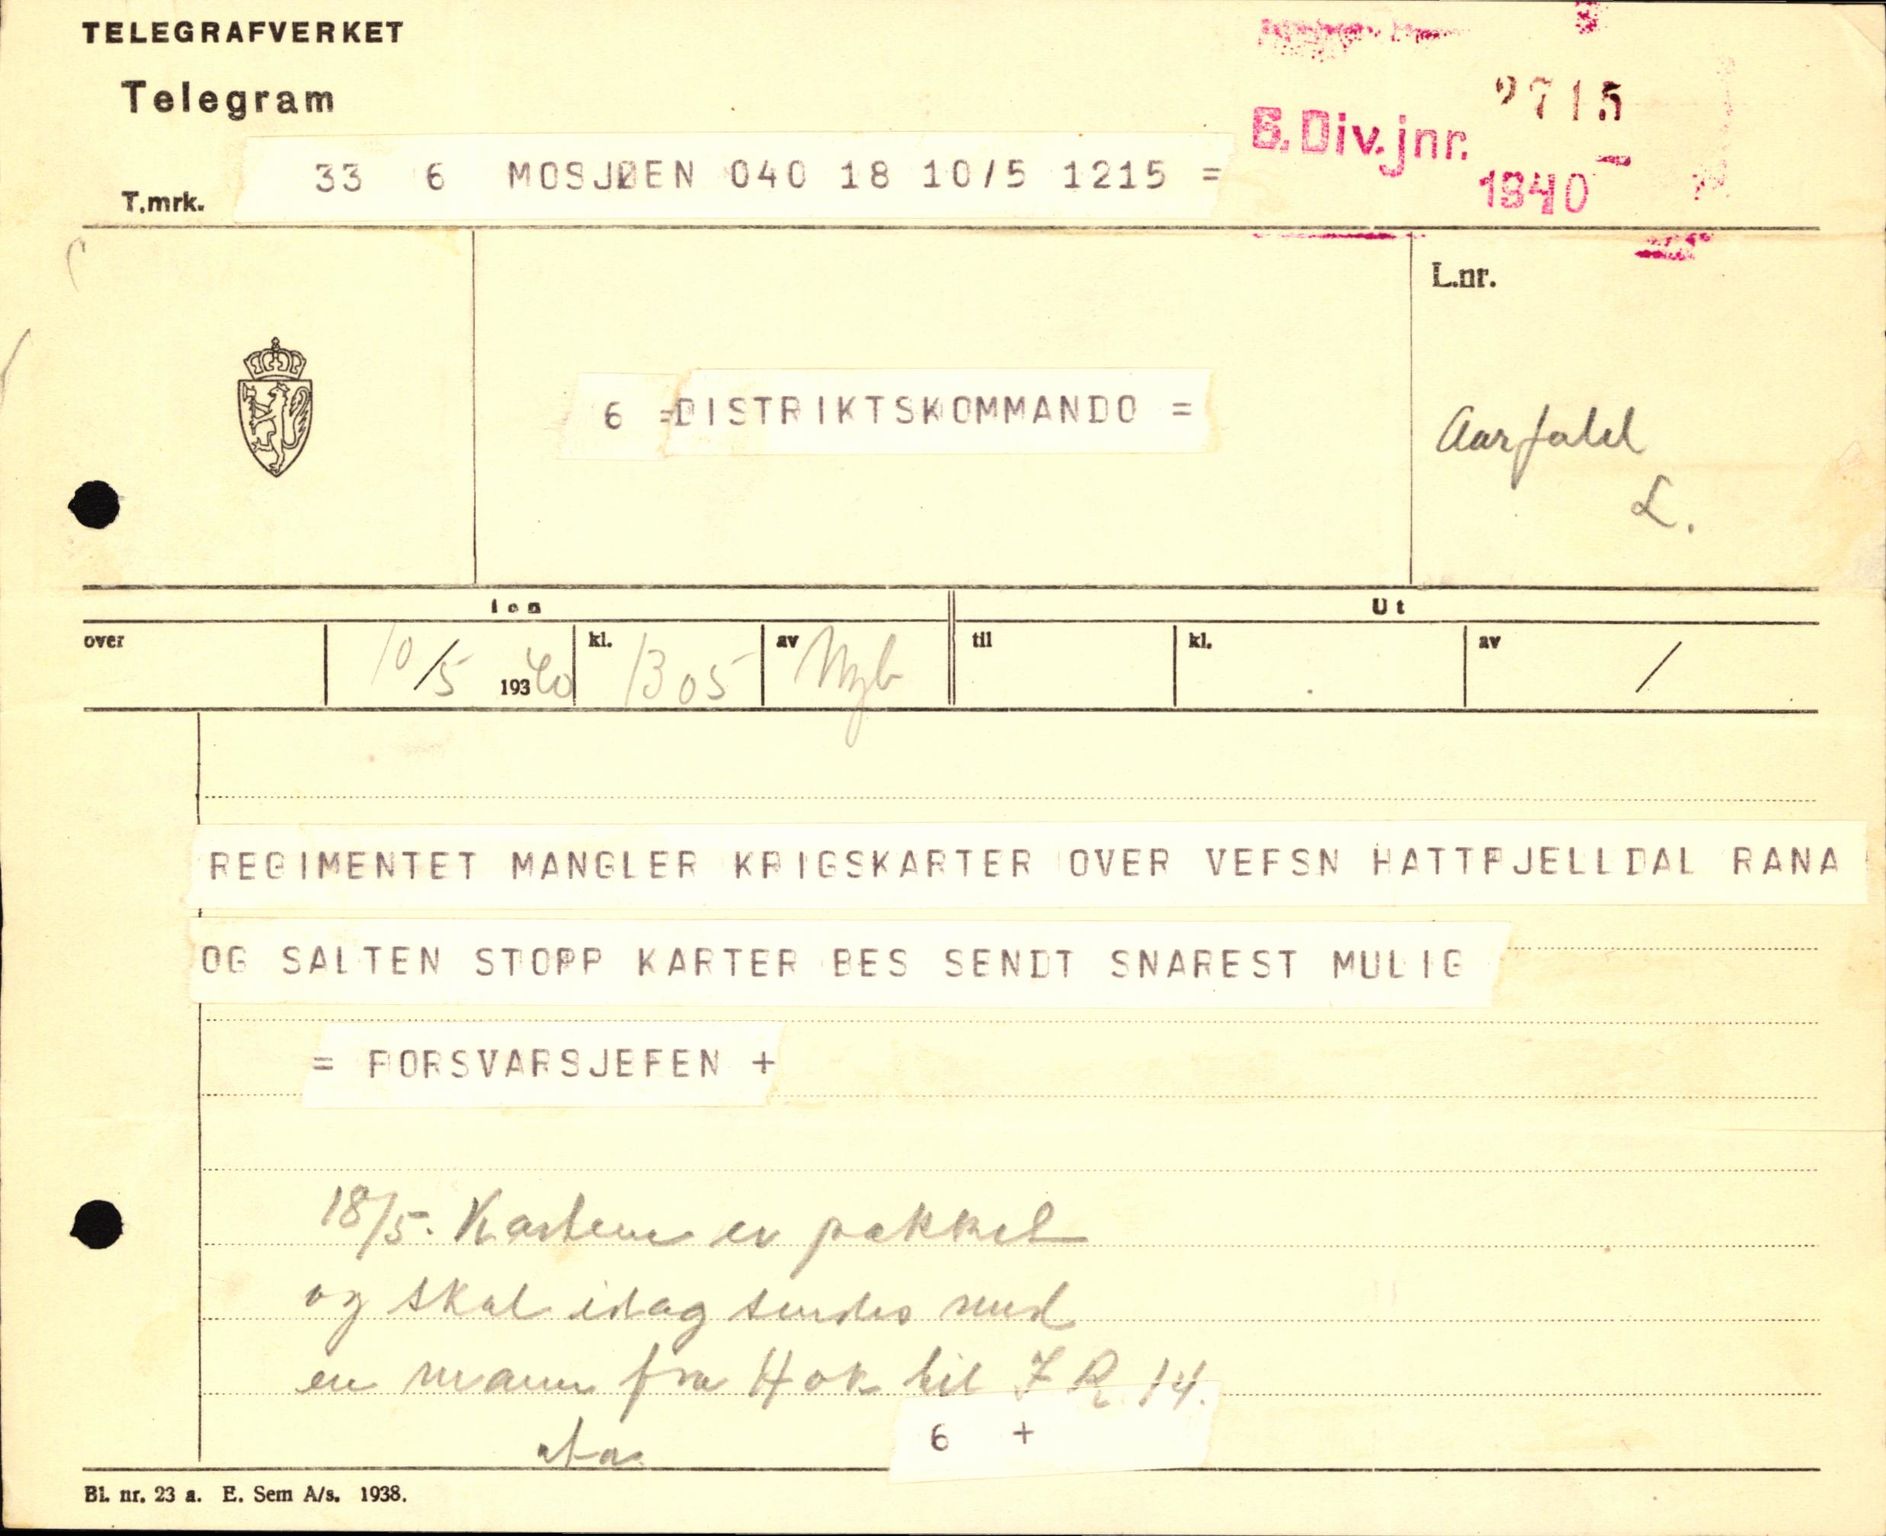 TELEGRAFVERKET
Telegram
2715
6. Div. jnr.
1940
T.mrk. 33 6 MOSJØEN 040 18 10/5 1215 =
L.nr.
6 =DISTRIKTSKOMMANDO =
L.
Inn Ut
over 10/5 19340 kl. 1305 av til kl. av /
REGIMENTET MANGLER KRIGSKARTER OVER VEFSN HATTFJELLDAL RANA
OG SALTEN STOPP KARTER BES SENDT SNAREST MULIG
= FORSVARSJEFEN +
18/5. Kartene er pakket
og skal idag sendes med
en mann fra Hok til I R 14.
6 +
Bl. nr. 23 a. E. Sem A/s. 1938.